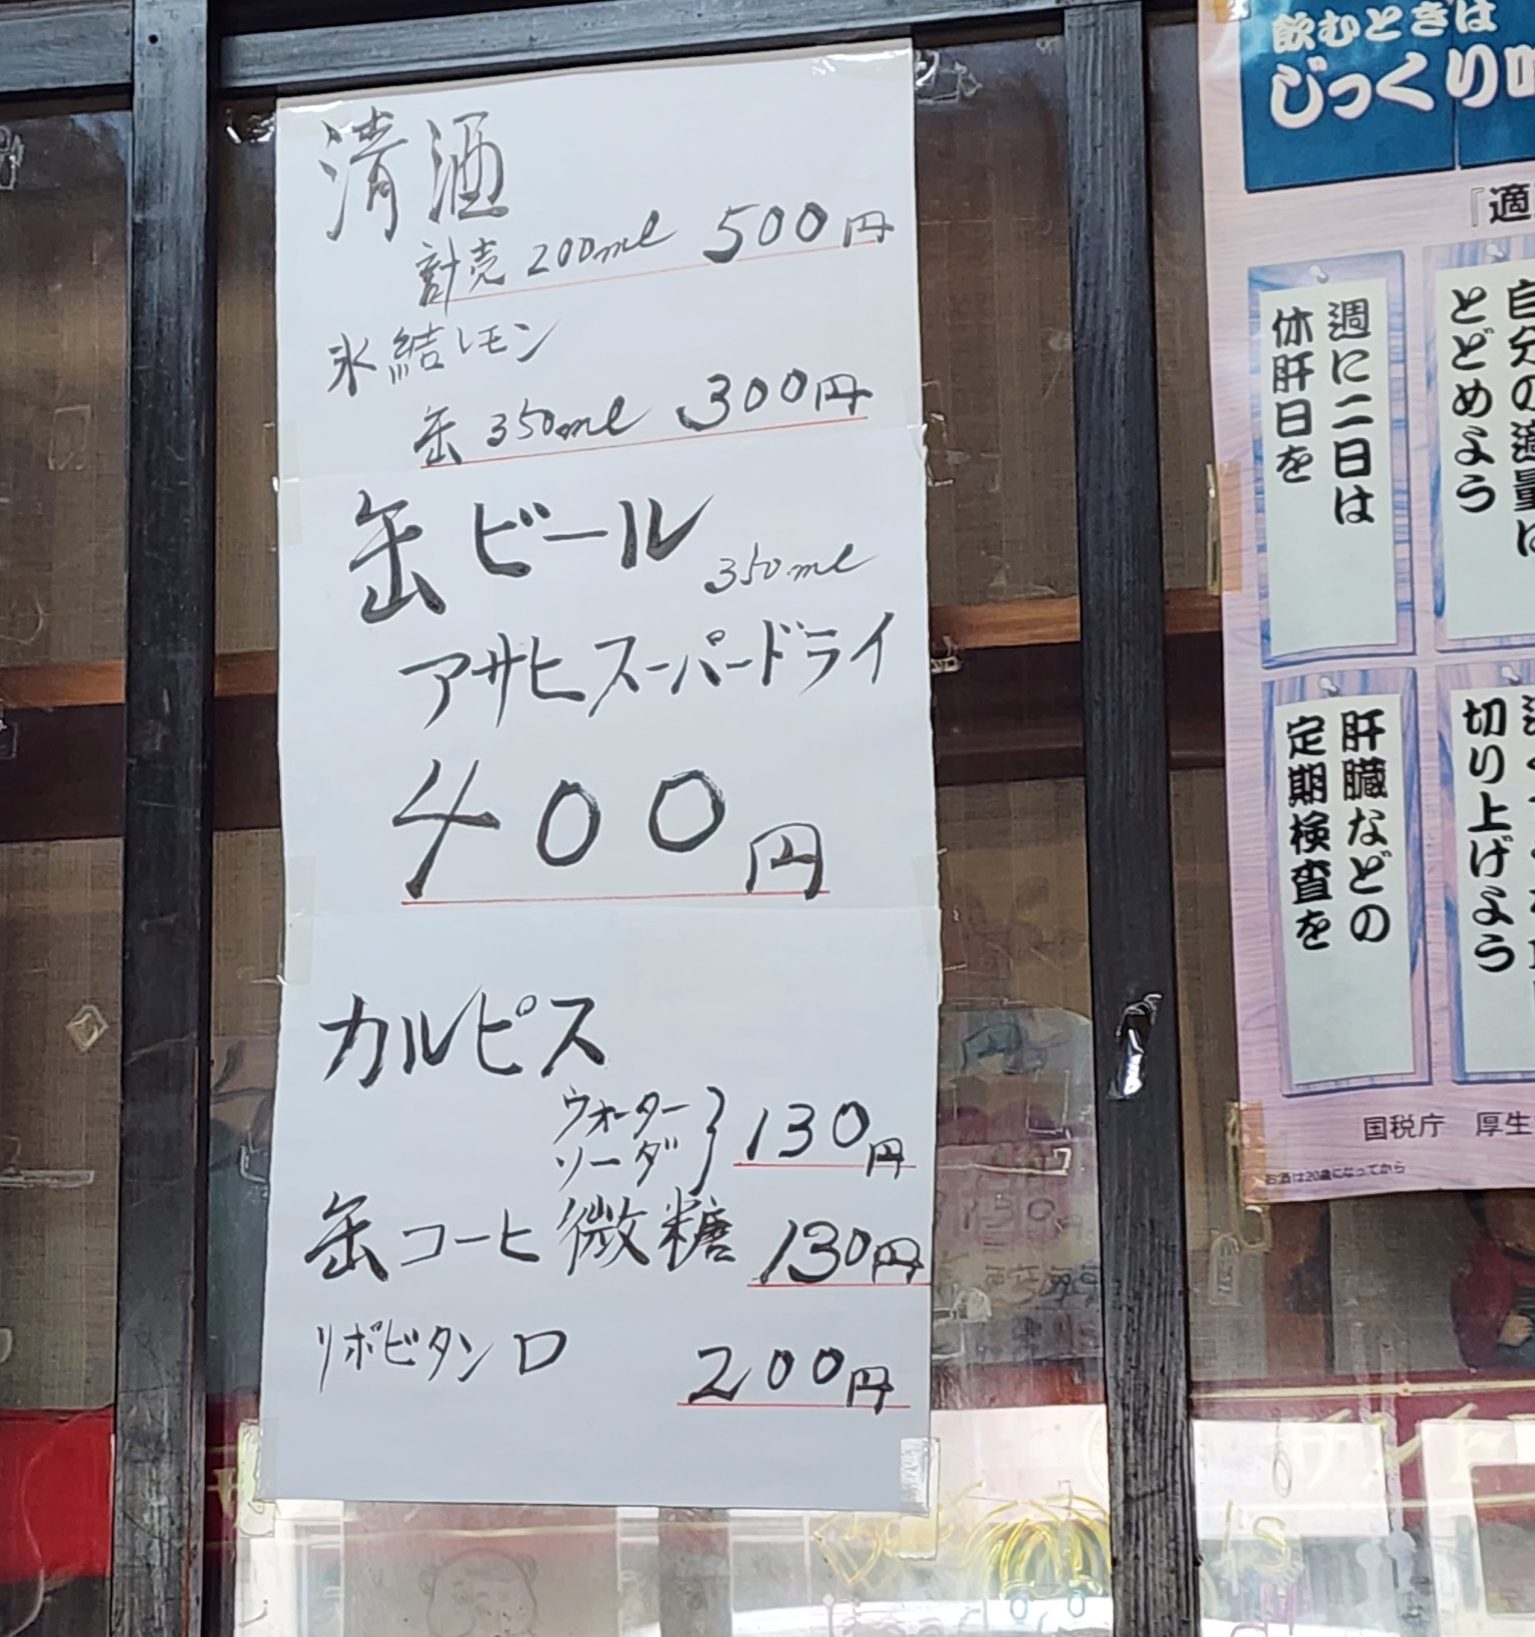 清酒
計売 200ml 500円
氷結レモン
缶 350ml 300円
缶ビール 350ml
アサヒスーパードライ
400円
カルピス
ウォーター
ソーダ } 130円
缶コーヒ微糖 130円
リポビタンD 200円
飲むときは
じっくり
『適
自分の適量に
とどめよう
週に二日は
休肝日を
切り上げよう
肝臓などの
定期検査を
国税庁 厚生
お酒は20歳になってから